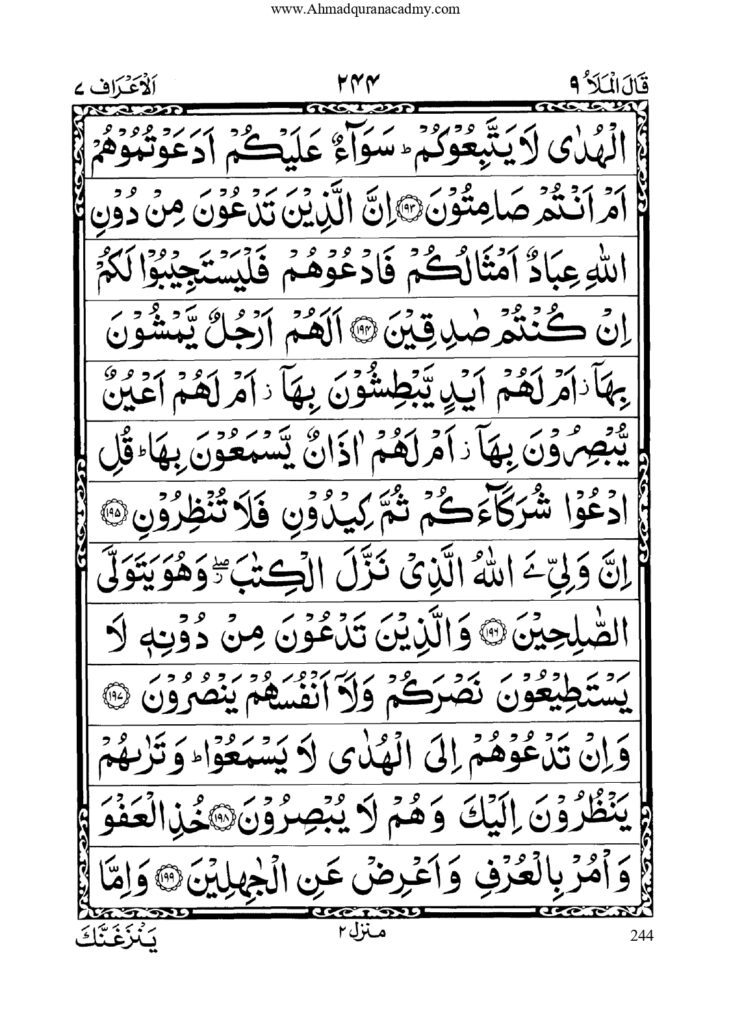 www.Ahmadquranacadmy.com
قَالَ الْمَلَاُ ٩ ٢٤٤ اَلْاَعْرَاف ٧
الْهُدٰى لَا يَتَّبِعُوْكُمْ ؕ سَوَآءٌ عَلَيْكُمْ اَدَعَوْتُمُوْهُمْ
اَمْ اَنْتُمْ صَامِتُوْنَ ﴿١٩٣﴾ اِنَّ الَّذِيْنَ تَدْعُوْنَ مِنْ دُوْنِ
اللّٰهِ عِبَادٌ اَمْثَالُكُمْ فَادْعُوْهُمْ فَلْيَسْتَجِيْبُوْا لَكُمْ
اِنْ كُنْتُمْ صٰدِقِيْنَ ﴿١٩٤﴾ اَلَهُمْ اَرْجُلٌ يَّمْشُوْنَ
بِهَاۤ ؗ اَمْ لَهُمْ اَيْدٍ يَّبْطِشُوْنَ بِهَاۤ ؗ اَمْ لَهُمْ اَعْيُنٌ
يُّبْصِرُوْنَ بِهَاۤ ؗ اَمْ لَهُمْ اٰذَانٌ يَّسْمَعُوْنَ بِهَا ؕ قُلِ
ادْعُوْا شُرَكَآءَكُمْ ثُمَّ كِيْدُوْنِ فَلَا تُنْظِرُوْنِ ﴿١٩٥﴾
اِنَّ وَلِيِّۦَ اللّٰهُ الَّذِيْ نَزَّلَ الْكِتٰبَ ۖؗ وَهُوَ يَتَوَلَّى
الصّٰلِحِيْنَ ﴿١٩٦﴾ وَالَّذِيْنَ تَدْعُوْنَ مِنْ دُوْنِهٖ لَا
يَسْتَطِيْعُوْنَ نَصْرَكُمْ وَلَاۤ اَنْفُسَهُمْ يَنْصُرُوْنَ ﴿١٩٧﴾
وَاِنْ تَدْعُوْهُمْ اِلَى الْهُدٰى لَا يَسْمَعُوْا ؕ وَتَرٰىهُمْ
يَنْظُرُوْنَ اِلَيْكَ وَهُمْ لَا يُبْصِرُوْنَ ﴿١٩٨﴾ خُذِ الْعَفْوَ
وَاْمُرْ بِالْعُرْفِ وَاَعْرِضْ عَنِ الْجٰهِلِيْنَ ﴿١٩٩﴾ وَاِمَّا
يَنْزَغَنَّكَ منزل ٢ 244